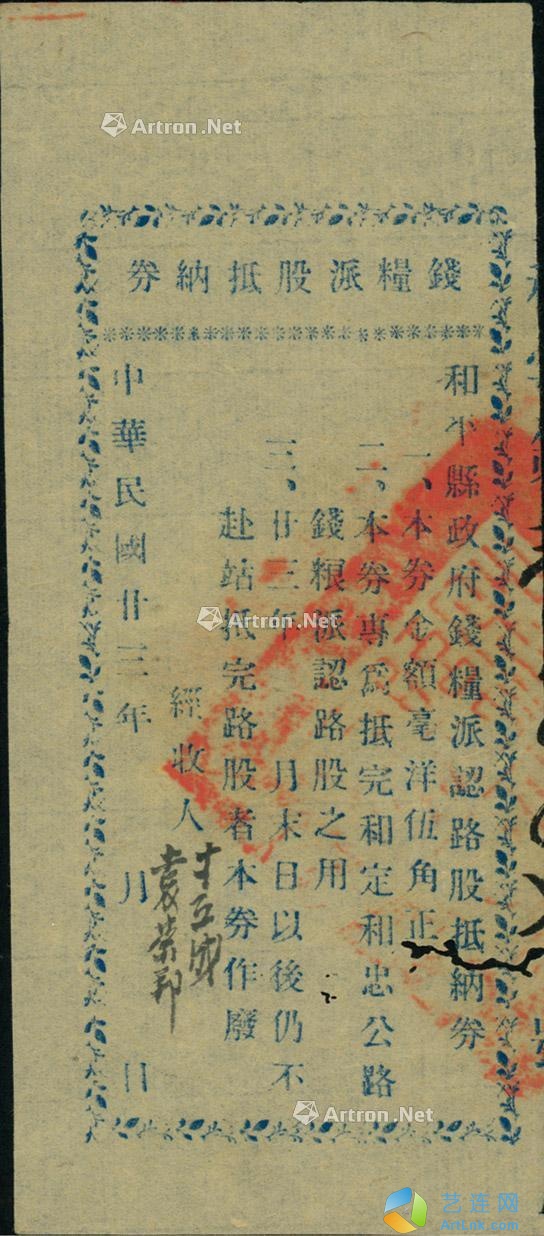 錢糧派股抵納券
和平縣政府錢糧派認路股抵納券
一、本券金額毫洋伍角正
二、本券專為抵完和定和忠公路
錢粮派認路股之用
三、廿三年 月末日以後仍不
赴站抵完路股者本券作廢
經收人
袁榮邦
中華民國廿三年 月 日
號
Artron.Net
Artron.Net
Artron.Net
艺莲网
ArtLnk.com